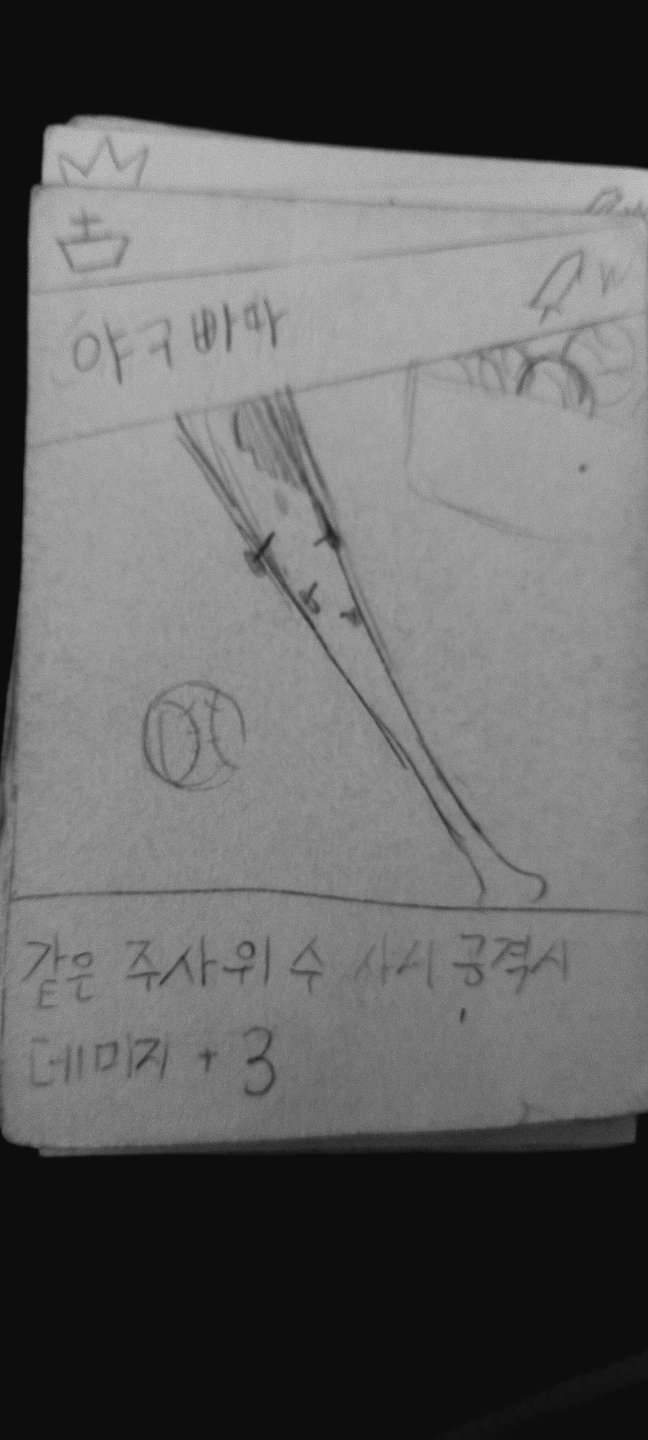 야구빠따
같은 주사위 수 공격시
데미지 + 3